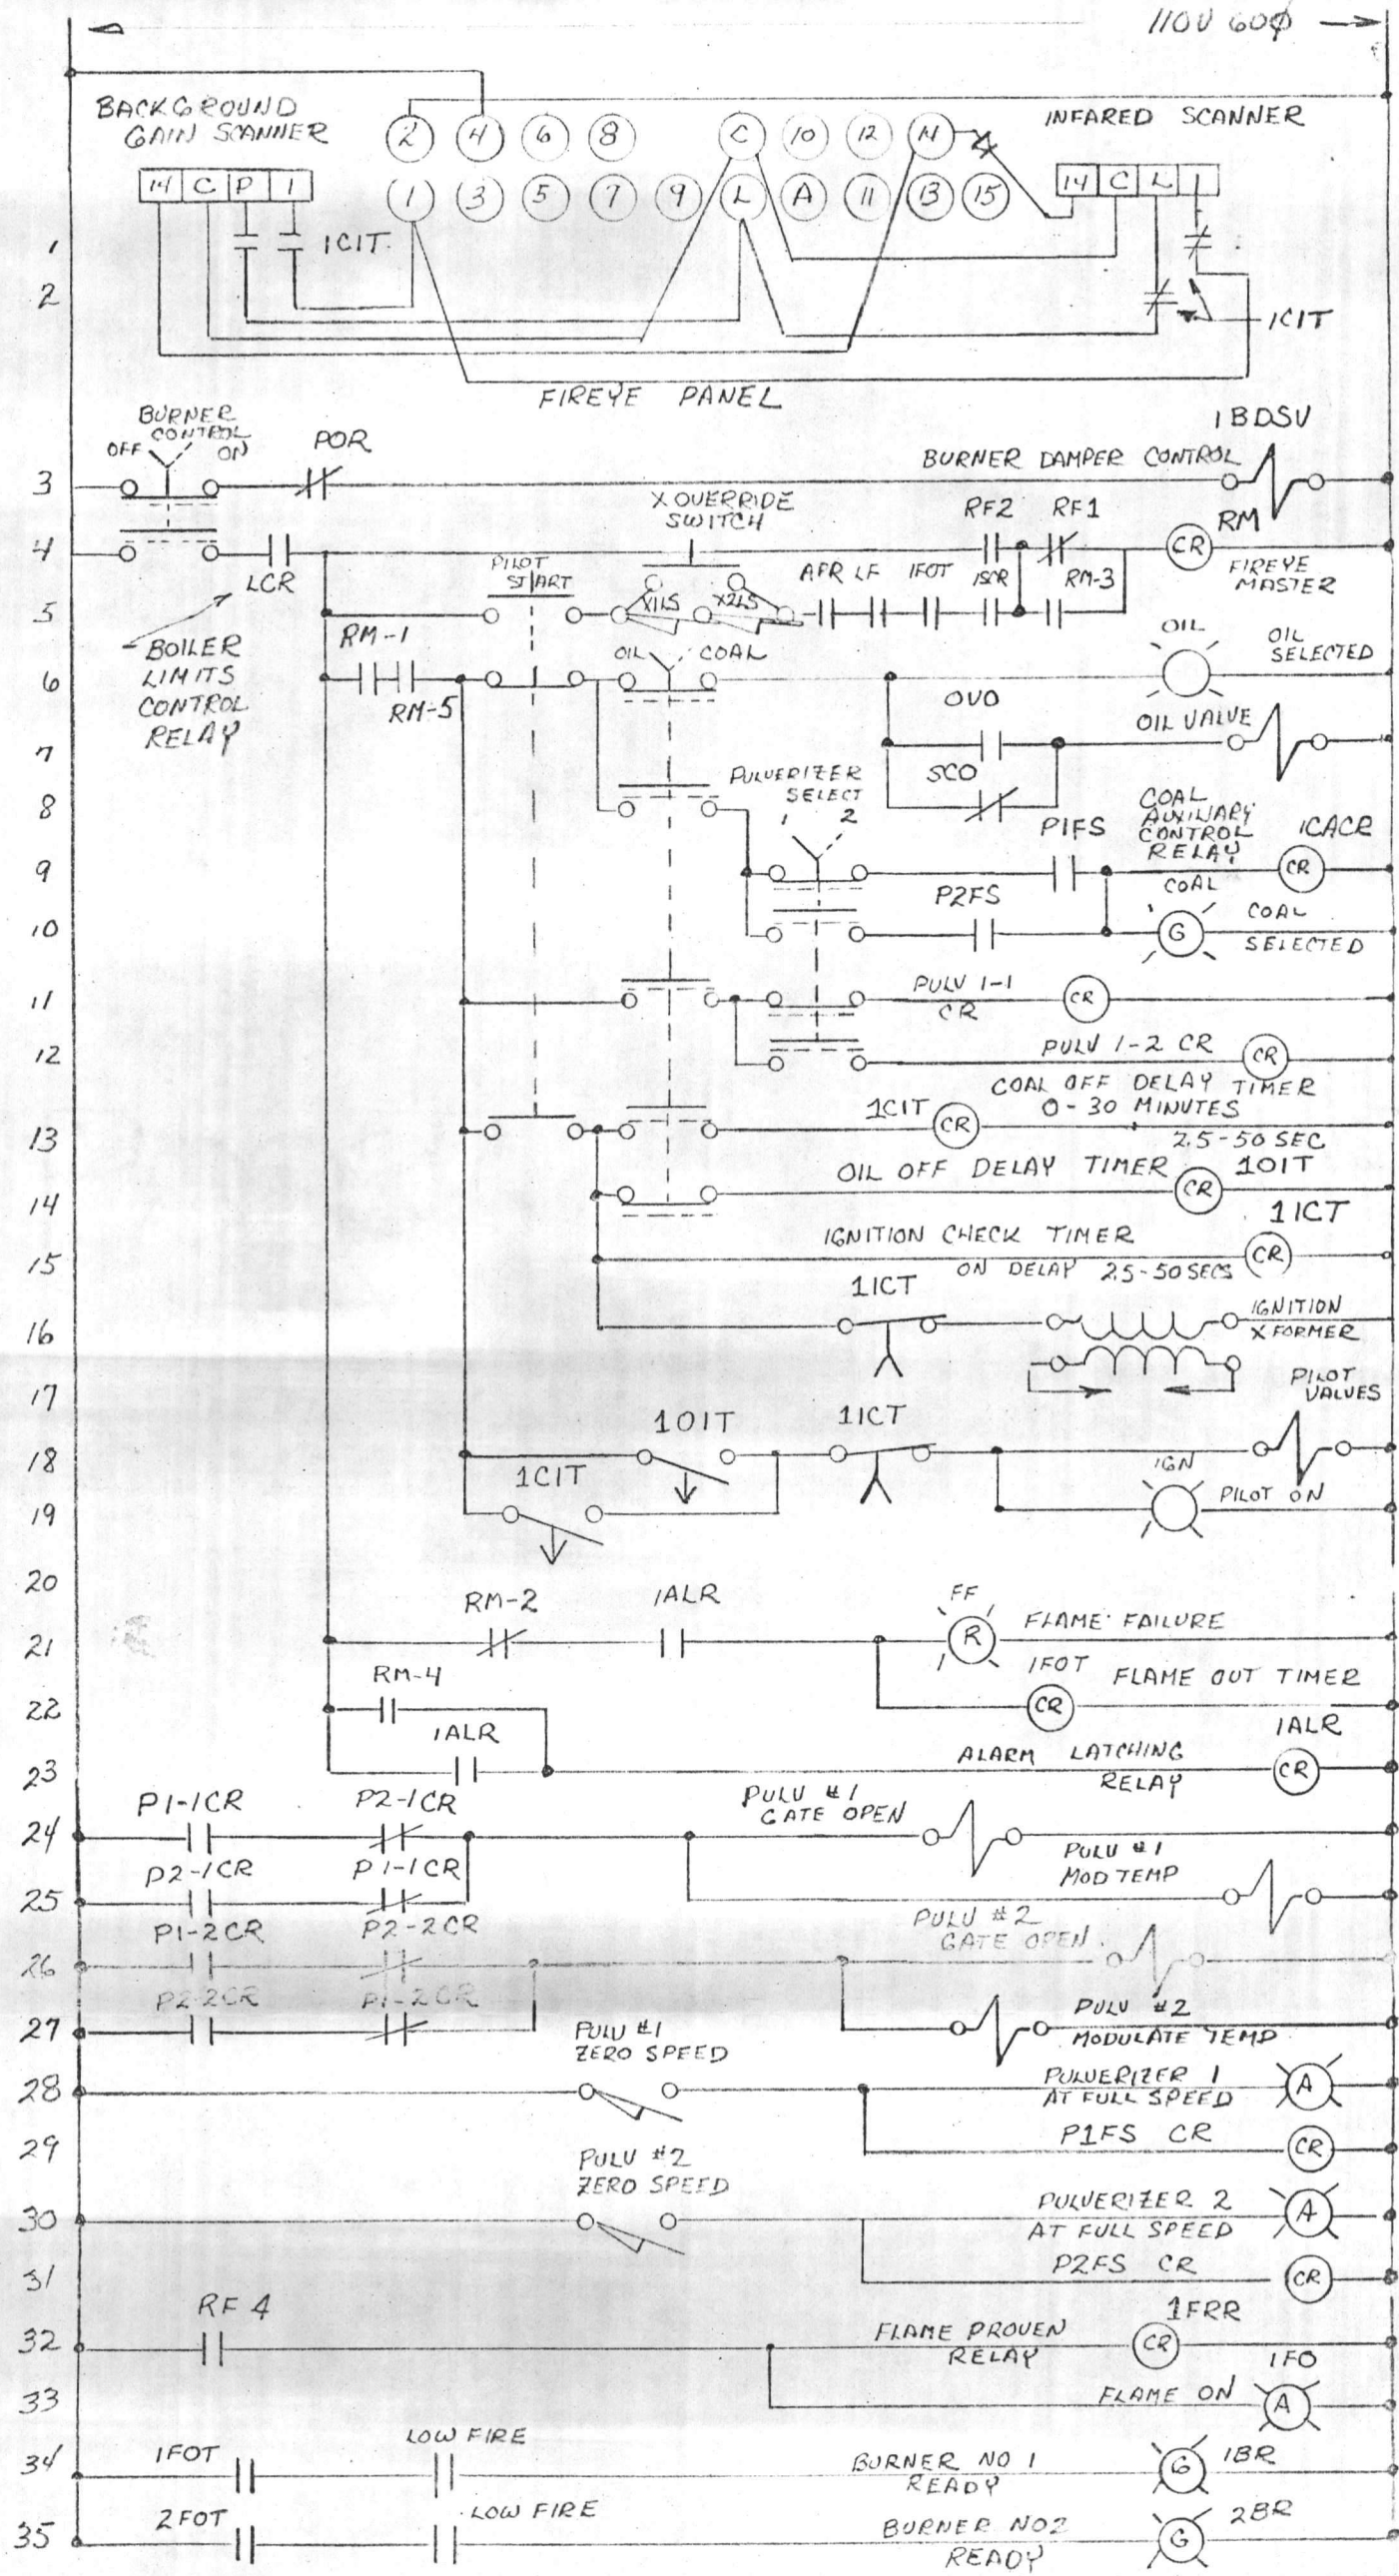 110V 60φ
BACKGROUND
GAIN SCANNER
2 4 6 8 C 10 12 14
INFARED SCANNER
14 C P 1
1 3 5 7 9 L A 11 13 15
14 C L 1
1
1CIT
2
1CIT
FIREYE PANEL
BURNER
CONTROL
OFF ON
POR
1BDSV
BURNER DAMPER CONTROL
3
X OVERRIDE
SWITCH
RF2 RF1
RM
4
CR
FIREYE
MASTER
LCR
PILOT
START
APR LF 1FOT 1SCR RM-3
X1LS X2LS
5
RM-1
BOILER
LIMITS
CONTROL
RELAY
OIL COAL
OIL
OIL
SELECTED
6
RM-5
OVO
OIL VALVE
7
SCO
PULVERIZER
SELECT
1 2
8
P1FS
COAL
AUXILIARY
CONTROL
RELAY
1CACR
9
CR
P2FS
COAL
COAL
SELECTED
10
G
11
PULV 1-1
CR
CR
12
PULV 1-2 CR
CR
COAL OFF DELAY TIMER
0-30 MINUTES
13
1CIT
CR
25-50 SEC
OIL OFF DELAY TIMER
1OIT
14
CR
1ICT
IGNITION CHECK TIMER
15
CR
ON DELAY 25-50 SECS
1ICT
16
IGNITION
XFORMER
17
PILOT
VALVES
1OIT 1ICT
18
1CIT
IGN
19
PILOT ON
20
RM-2 1ALR
FF
21
R
FLAME FAILURE
RM-4
1FOT
FLAME OUT TIMER
22
CR
1ALR
1ALR
23
ALARM LATCHING
RELAY
CR
P1-1CR P2-1CR
PULV #1
GATE OPEN
24
P2-1CR P1-1CR
PULV #1
MOD TEMP
25
P1-2CR P2-2CR
PULV #2
GATE OPEN
26
P2-2CR P1-2CR
27
PULV #2
MODULATE TEMP
PULV #1
ZERO SPEED
28
PULVERIZER 1
AT FULL SPEED
A
29
P1FS CR
CR
PULV #2
ZERO SPEED
30
PULVERIZER 2
AT FULL SPEED
A
31
P2FS CR
CR
RF 4
1FRR
32
FLAME PROVEN
RELAY
CR
1FO
33
FLAME ON
A
1FOT LOW FIRE
34
BURNER NO 1
READY
G
1BR
2FOT LOW FIRE
35
BURNER NO2
READY
G
2BR